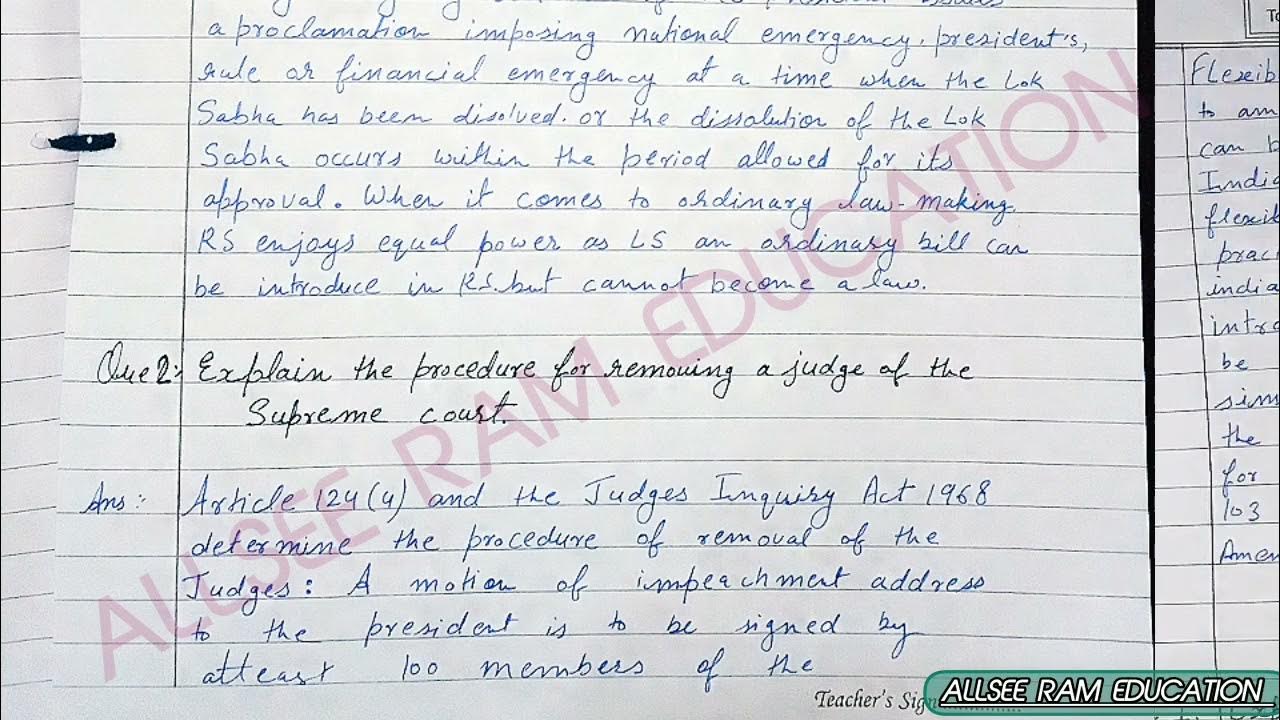 a proclamation imposing national emergency. president's,
rule or financial emergency at a time when the Lok
Sabha has been disolved. or the dissolution of the Lok
Sabha occurs within the period allowed for its
approval. When it comes to ordinary law-making.
RS enjoys equal power as LS an ordinary bill can
be introduce in RS. but cannot become a law.
Que 2:- Explain the procedure for removing a judge of the
Supreme court.
Ans :- Article 124(4) and the Judges Inquiry Act 1968
determine the procedure of removal of the
Judges: A motion of impeachment address
to the president is to be signed by
atleast 100 members of the
Teacher's
ALLSEE RAM EDUCATION
ALLSEE RAM EDUCATION
to am
can b
India
be
the
for
103
Amen